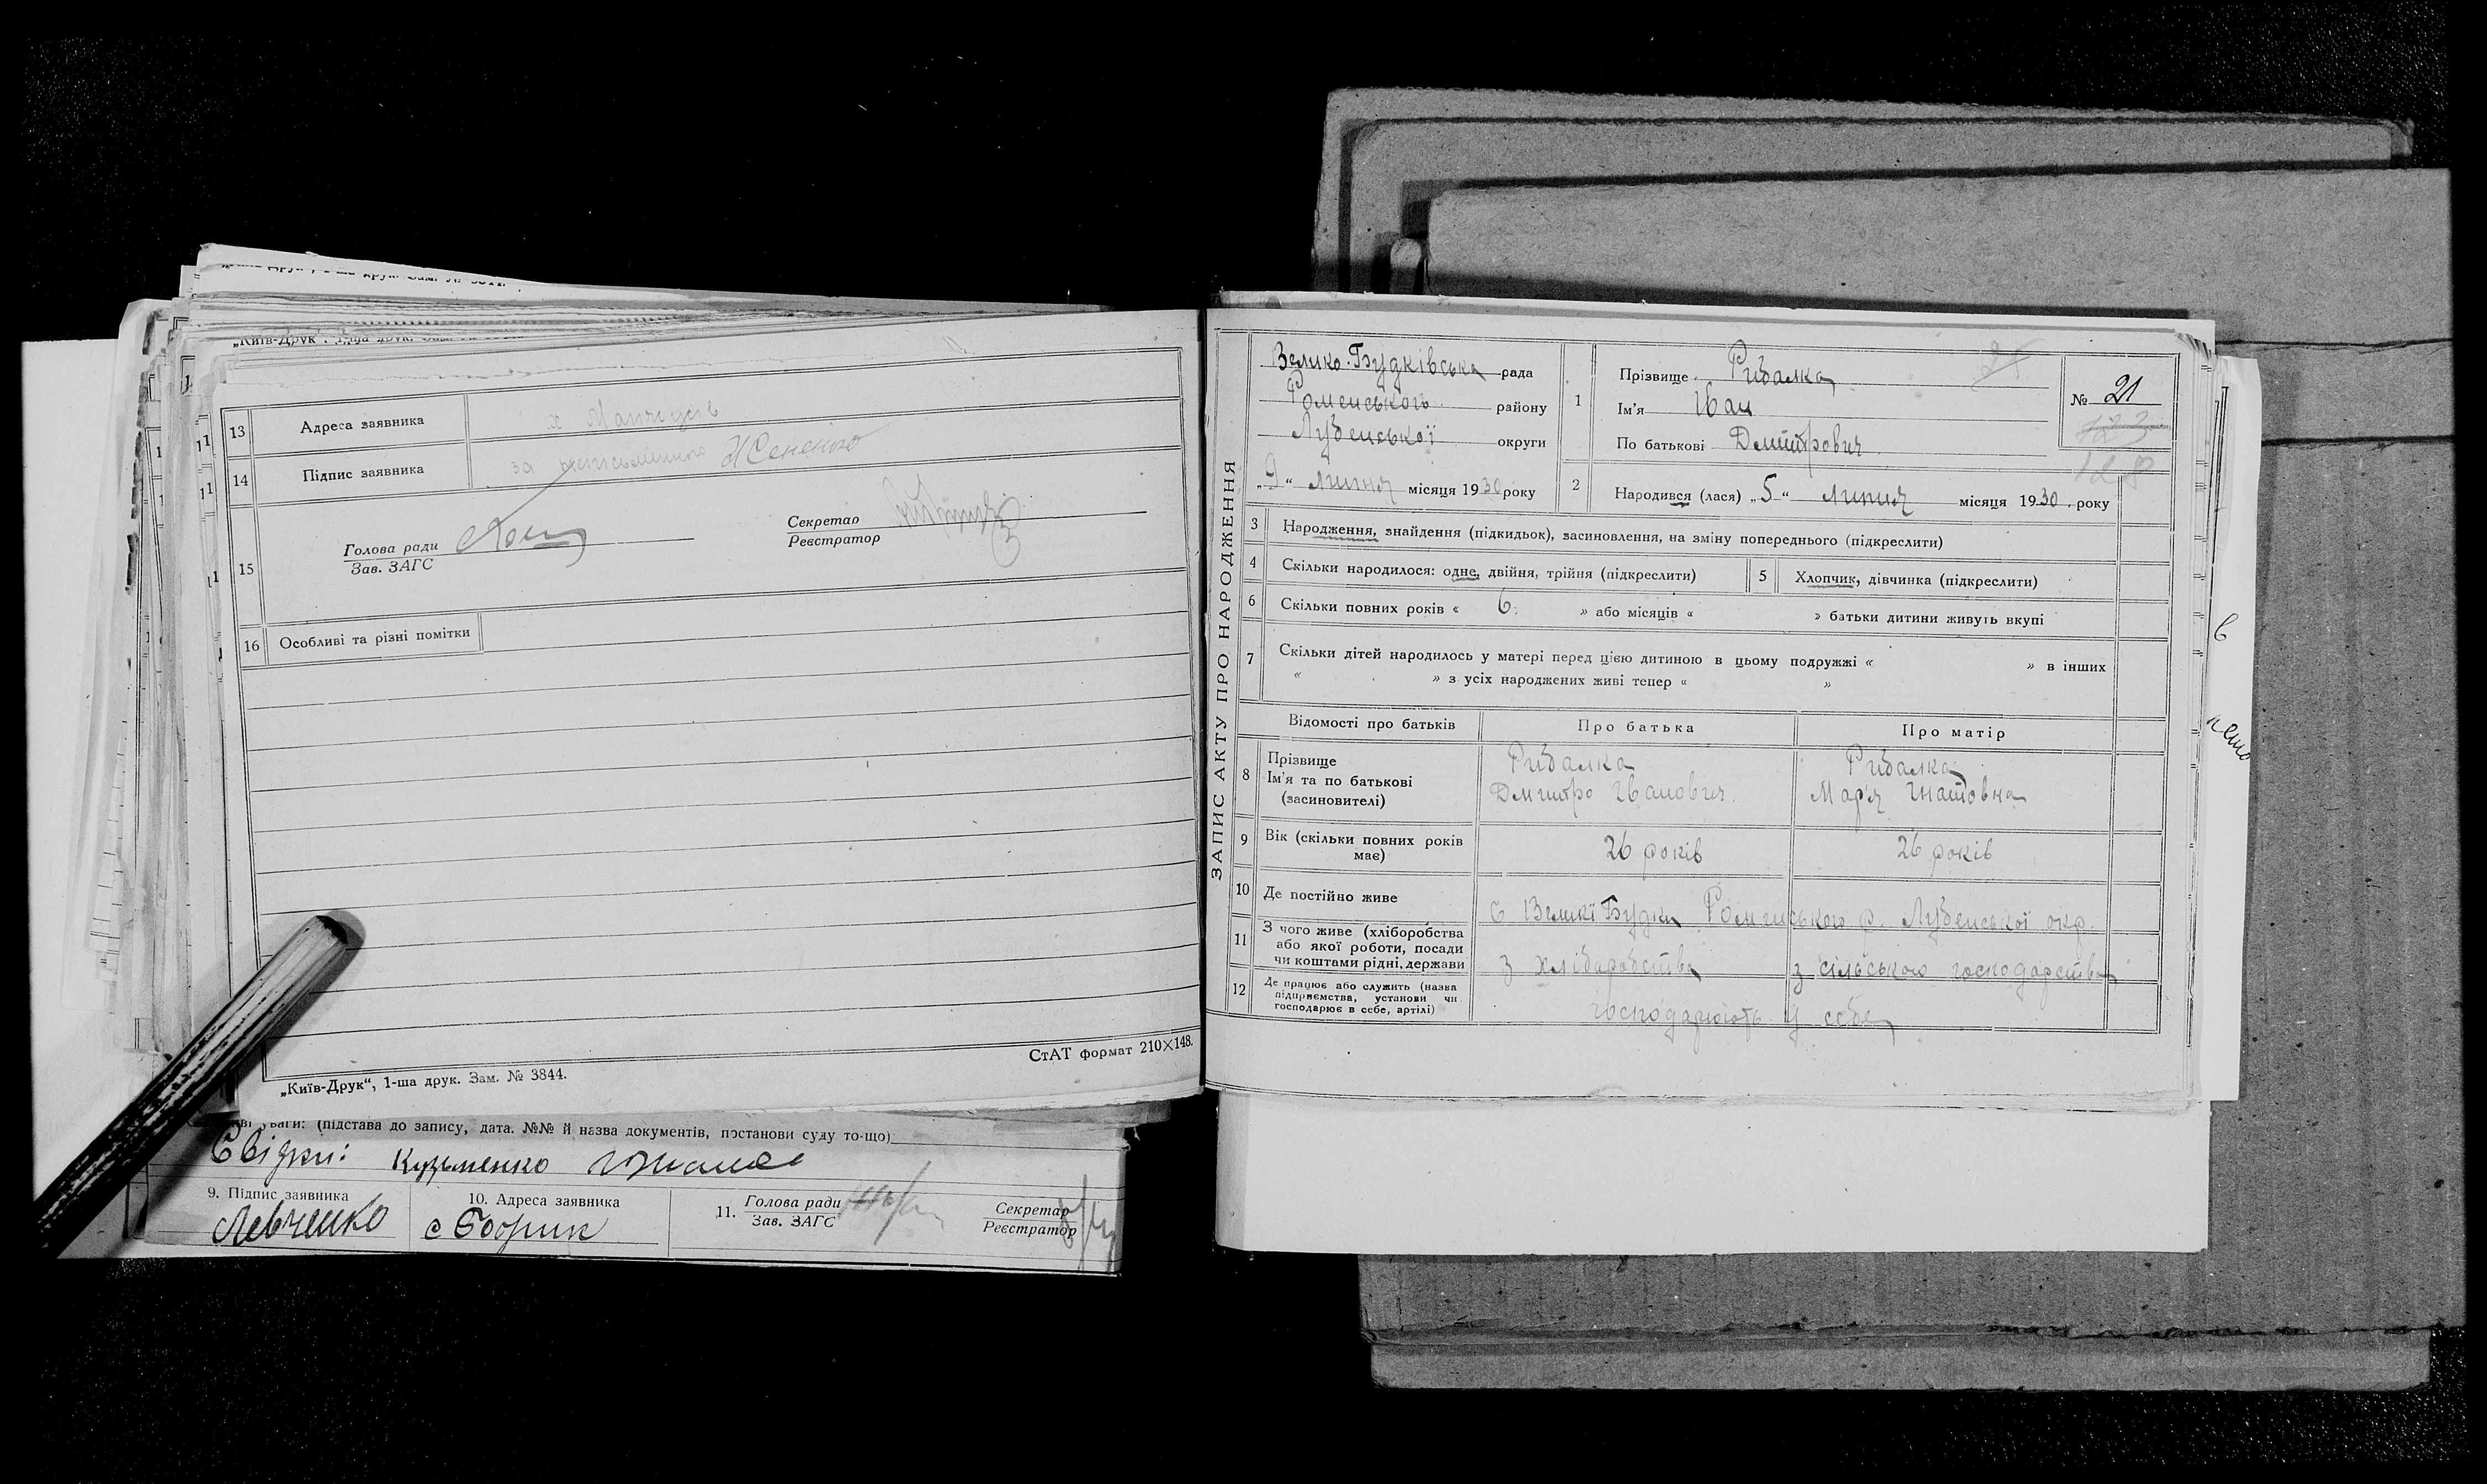 „Київ-Друк“, 1-ша друк.
13 Адреса заявника х
14 Підпис заявника за неписьменного
15 Голова ради
Зав. ЗАГС
Секретар
Реєстратор
16 Особливі та різні помітки
СтАТ формат 210×148.
„Київ-Друк“, 1-ша друк. Зам. № 3844.
уваги: (підстава до запису, дата. №№ й назва документів, постанови суду то-що)
Свідки: Кузьменко
9. Підпис заявника
Левченко
10. Адреса заявника
с
11. Голова ради
Зав. ЗАГС
Секретар
Реєстратор
ЗАПИС АКТУ ПРО НАРОДЖЕННЯ
Велико-Будківська рада
Роменського району
Лубенської округи
„9“ липня місяця 1930 року
1 Прізвище Рибалка
Ім'я Іван
По батькові Дмитрович
21
№ 21
123
128
2 Народився (лася) „5“ липня місяця 1930. року
3 Народження, знайдення (підкидьок), засиновлення, на зміну попереднього (підкреслити)
4 Скільки народилося: одне, двійня, трійня (підкреслити) 5 Хлопчик, дівчинка (підкреслити)
6 Скільки повних років « 6. » або місяців « » батьки дитини живуть вкупі
7 Скільки дітей народилось у матері перед цією дитиною в цьому подружжі « » в інших
« » з усіх народжених живі тепер « »
Відомості про батьків Про батька Про матір
8 Прізвище Рибалка Рибалка
Ім'я та по батькові Дмитро Іванович. Мар'я Гнатовна
(засиновителі)
9 Вік (скільки повних років має) 26 років 26 років
10 Де постійно живе с Великі Будки Роменського р. Лубенської окр.
11 З чого живе (хліборобства
або якої роботи, посади
чи коштами рідні, держави з хліборобства з сільського господарства
12 Де працює або служить (назва
підприємства, установи чи
господарює в себе, артілі) господарюють у себе